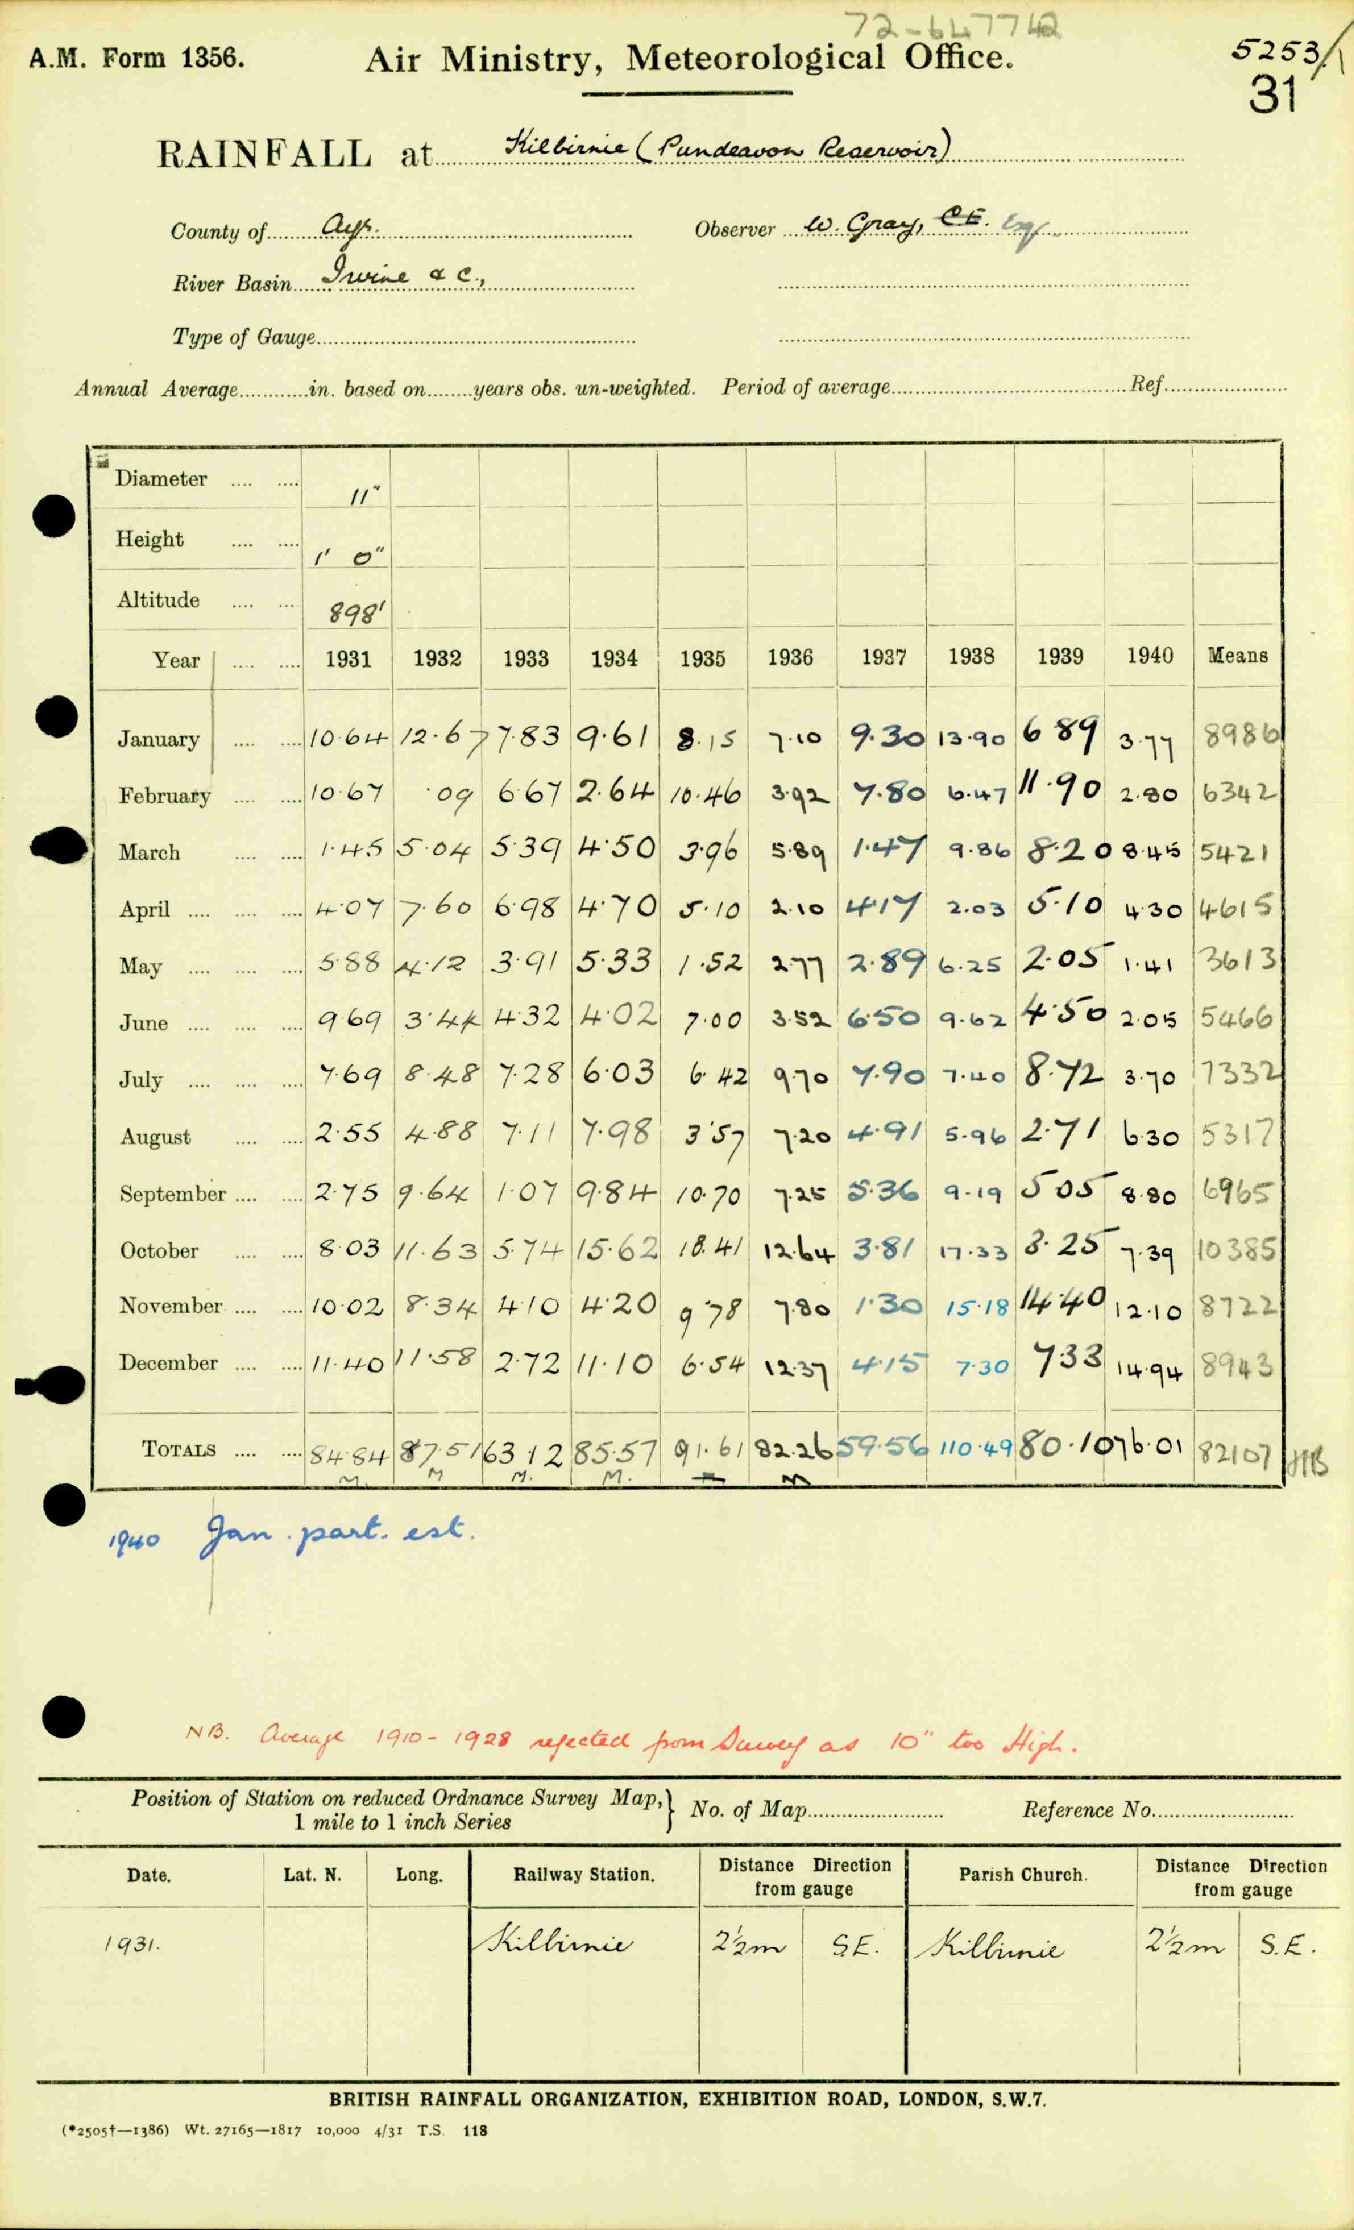 72-647742
A.M. Form 1356. Air Ministry, Meteorological Office. 5253/1
31
RAINFALL at Kilbirnie (Pundeavon Reservoir)
County of Ayr. Observer W. Gray, C.E. Esq.
River Basin Irvine & C.,
Type of Gauge
Annual Average in. based on years obs. un-weighted. Period of average Ref.
Diameter 11"
Height 1' 0"
Altitude 898'
Year 1931 1932 1933 1934 1935 1936 1937 1938 1939 1940 Means
January 10·64 12·67 7·83 9·61 8·15 7·10 9·30 13·90 6 89 3·77 8986
February 10·67 ·09 6·67 2·64 10·46 3·92 7·80 6·47 11·90 2·80 6342
March 1·45 5·04 5·39 4·50 3·96 5·89 1·47 9·86 8·20 8·45 5421
April 4·07 7·60 6·98 4·70 5·10 2·10 4·17 2·03 5·10 4·30 4615
May 5·88 4·12 3·91 5·33 1·52 2·77 2·89 6·25 2·05 1·41 3613
June 9·69 3·44 4·32 4·02 7·00 3·52 6·50 9·62 4·50 2·05 5466
July 7·69 8·48 7·28 6·03 6·42 9·70 7·90 7·40 8·72 3·70 7332
August 2·55 4·88 7·11 7·98 3·57 7·20 4·91 5·96 2·71 6·30 5317
September 2·75 9·64 1·07 9·84 10·70 7·25 5·36 9·19 5 05 8·80 6965
October 8·03 11·63 5·74 15·62 18·41 12·64 3·81 17·33 3·25 7·39 10385
November 10·02 8·34 4·10 4·20 9·78 7·80 1·30 15·18 14·40 12·10 8722
December 11·40 11·58 2·72 11·10 6·54 12·37 4·15 7·30 7·33 14·94 8943
TOTALS 84·84 87·51 63·12 85·57 91·61 82·26 59·56 110·49 80·10 76·01 82107 HB
M. M M. M. M
1940 Jan. part. est.
NB. Average 1910-1928 rejected from Survey as 10" too High.
Position of Station on reduced Ordnance Survey Map, } No. of Map Reference No.
1 mile to 1 inch Series
Date. Lat. N. Long. Railway Station. Distance Direction from gauge Parish Church. Distance Direction from gauge
1931. Kilbirnie 2½m S.E. Kilbirnie 2½m S.E.
BRITISH RAINFALL ORGANIZATION, EXHIBITION ROAD, LONDON, S.W.7.
(*2505†—1386) Wt. 27165—1817 10,000 4/31 T.S. 118